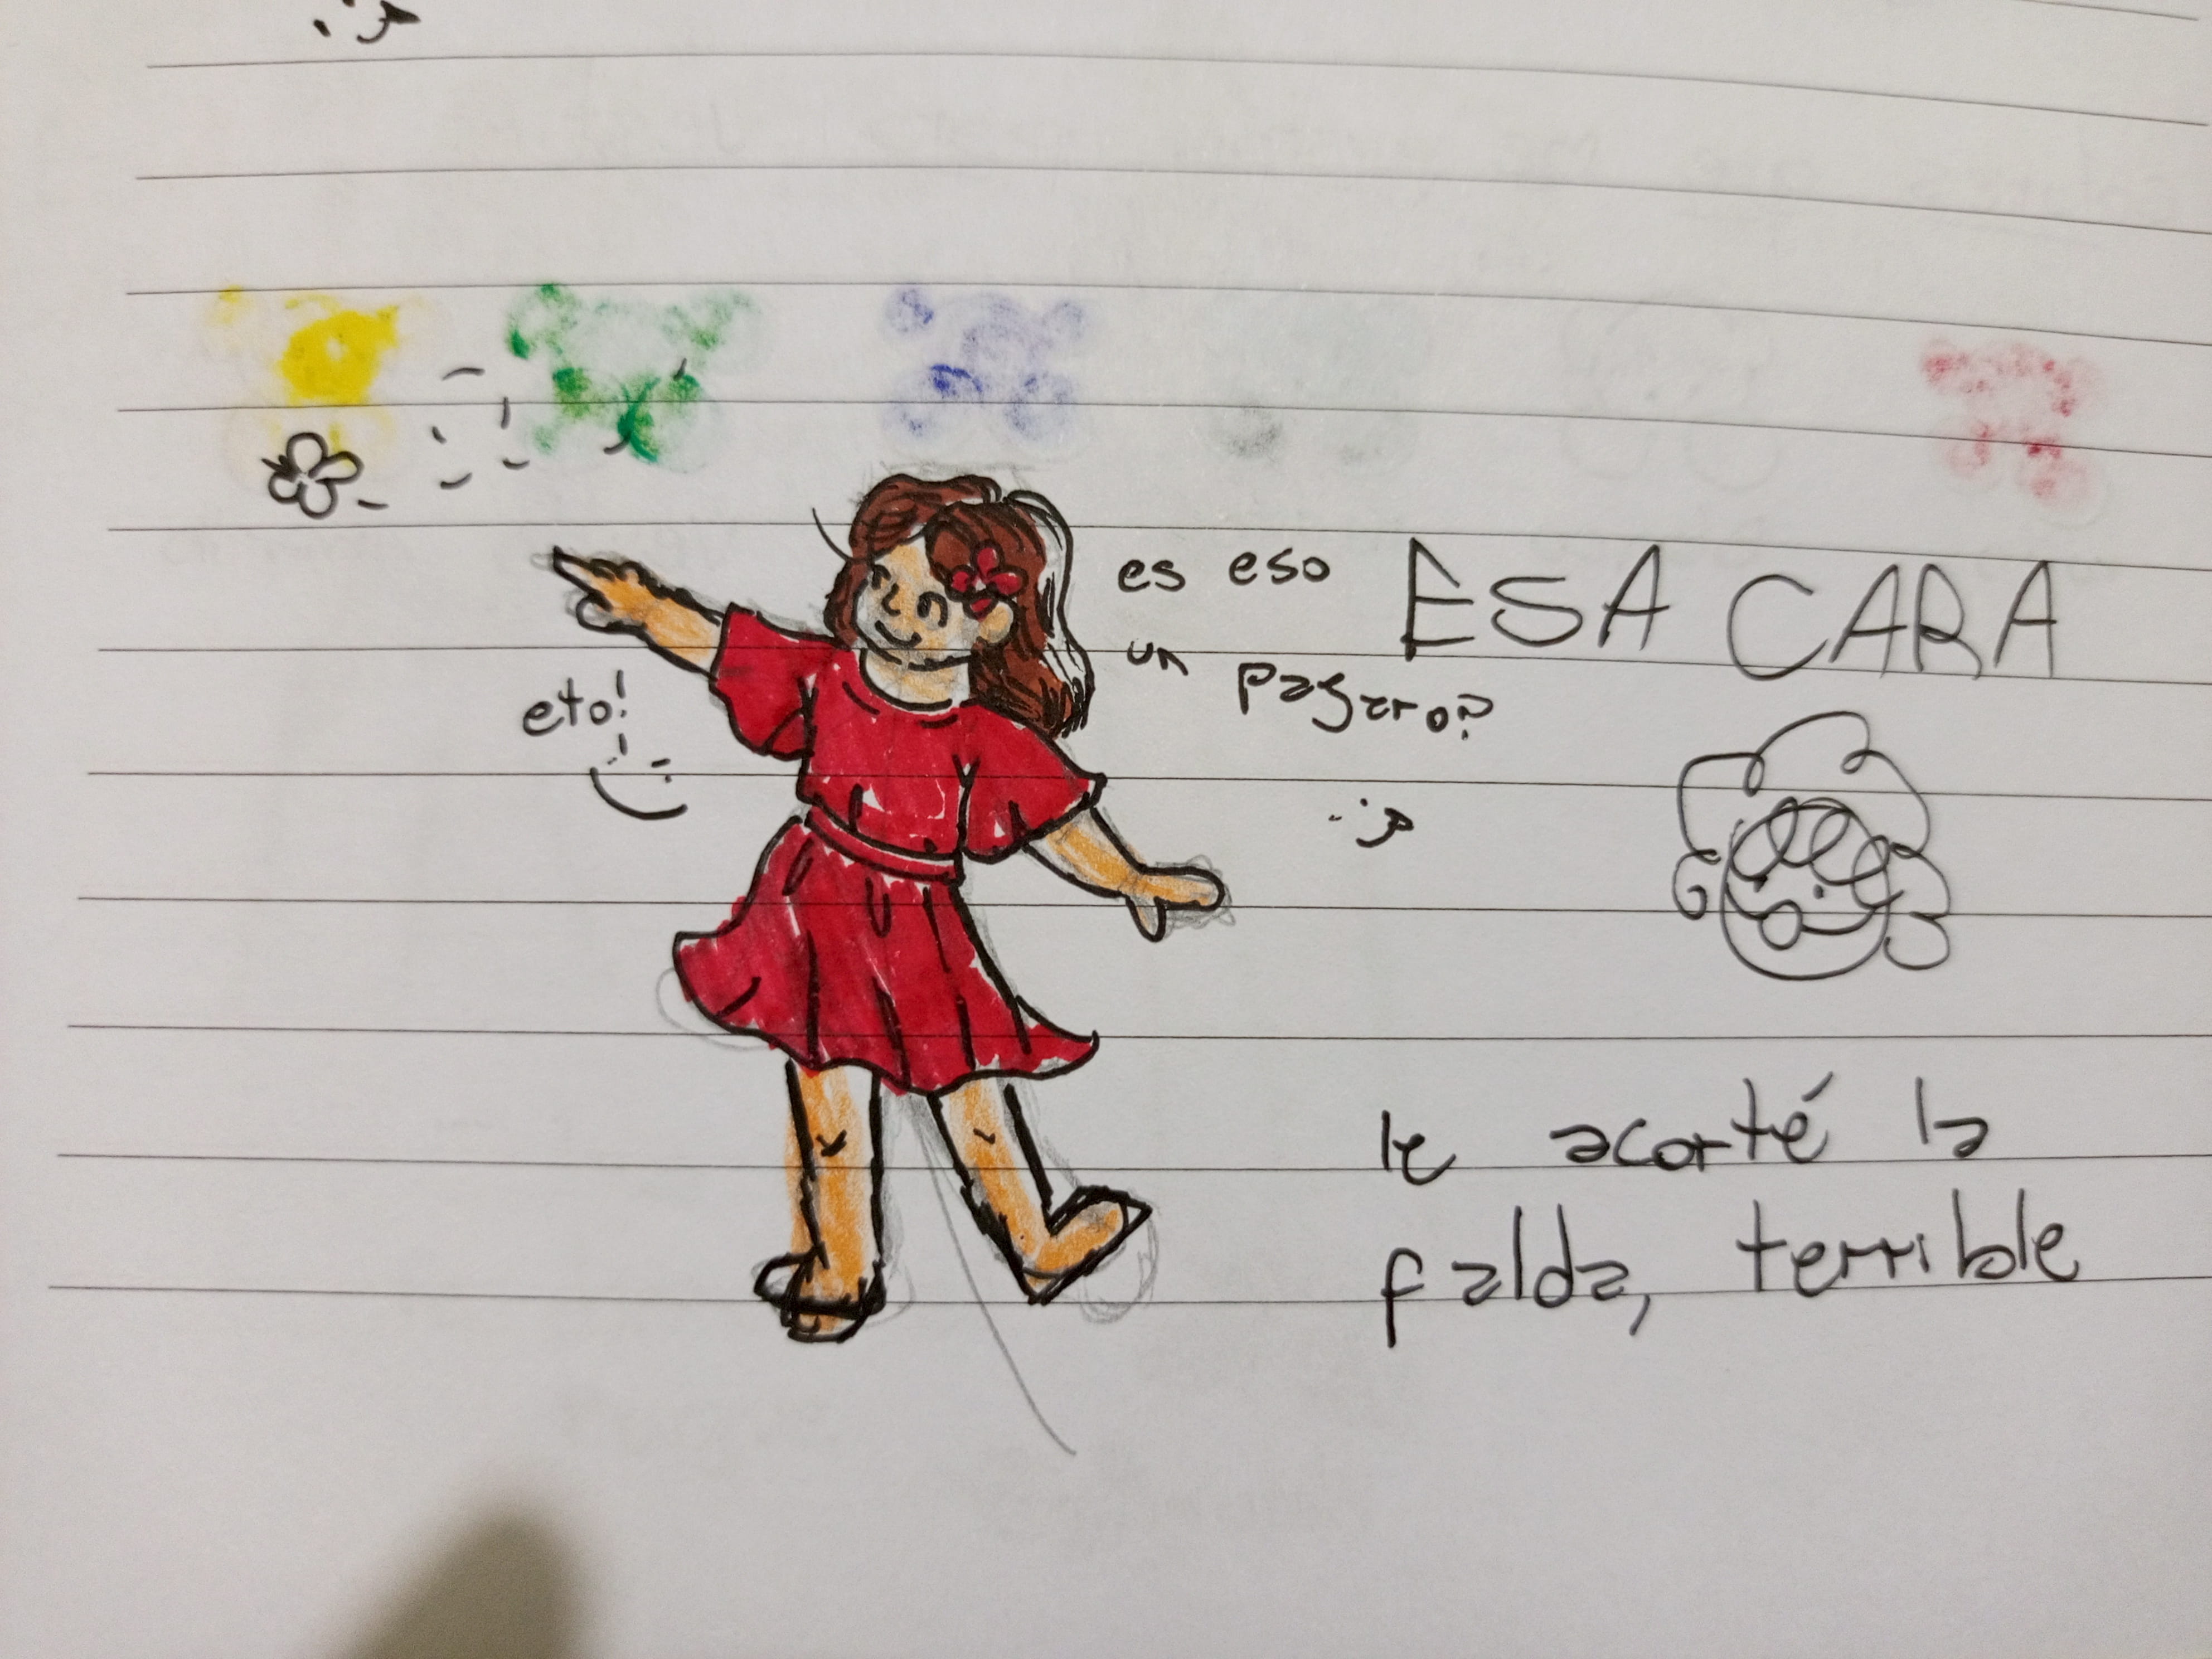 es eso ESA CARA
un pagaro?
eto!
le acorté la
falda, terrible